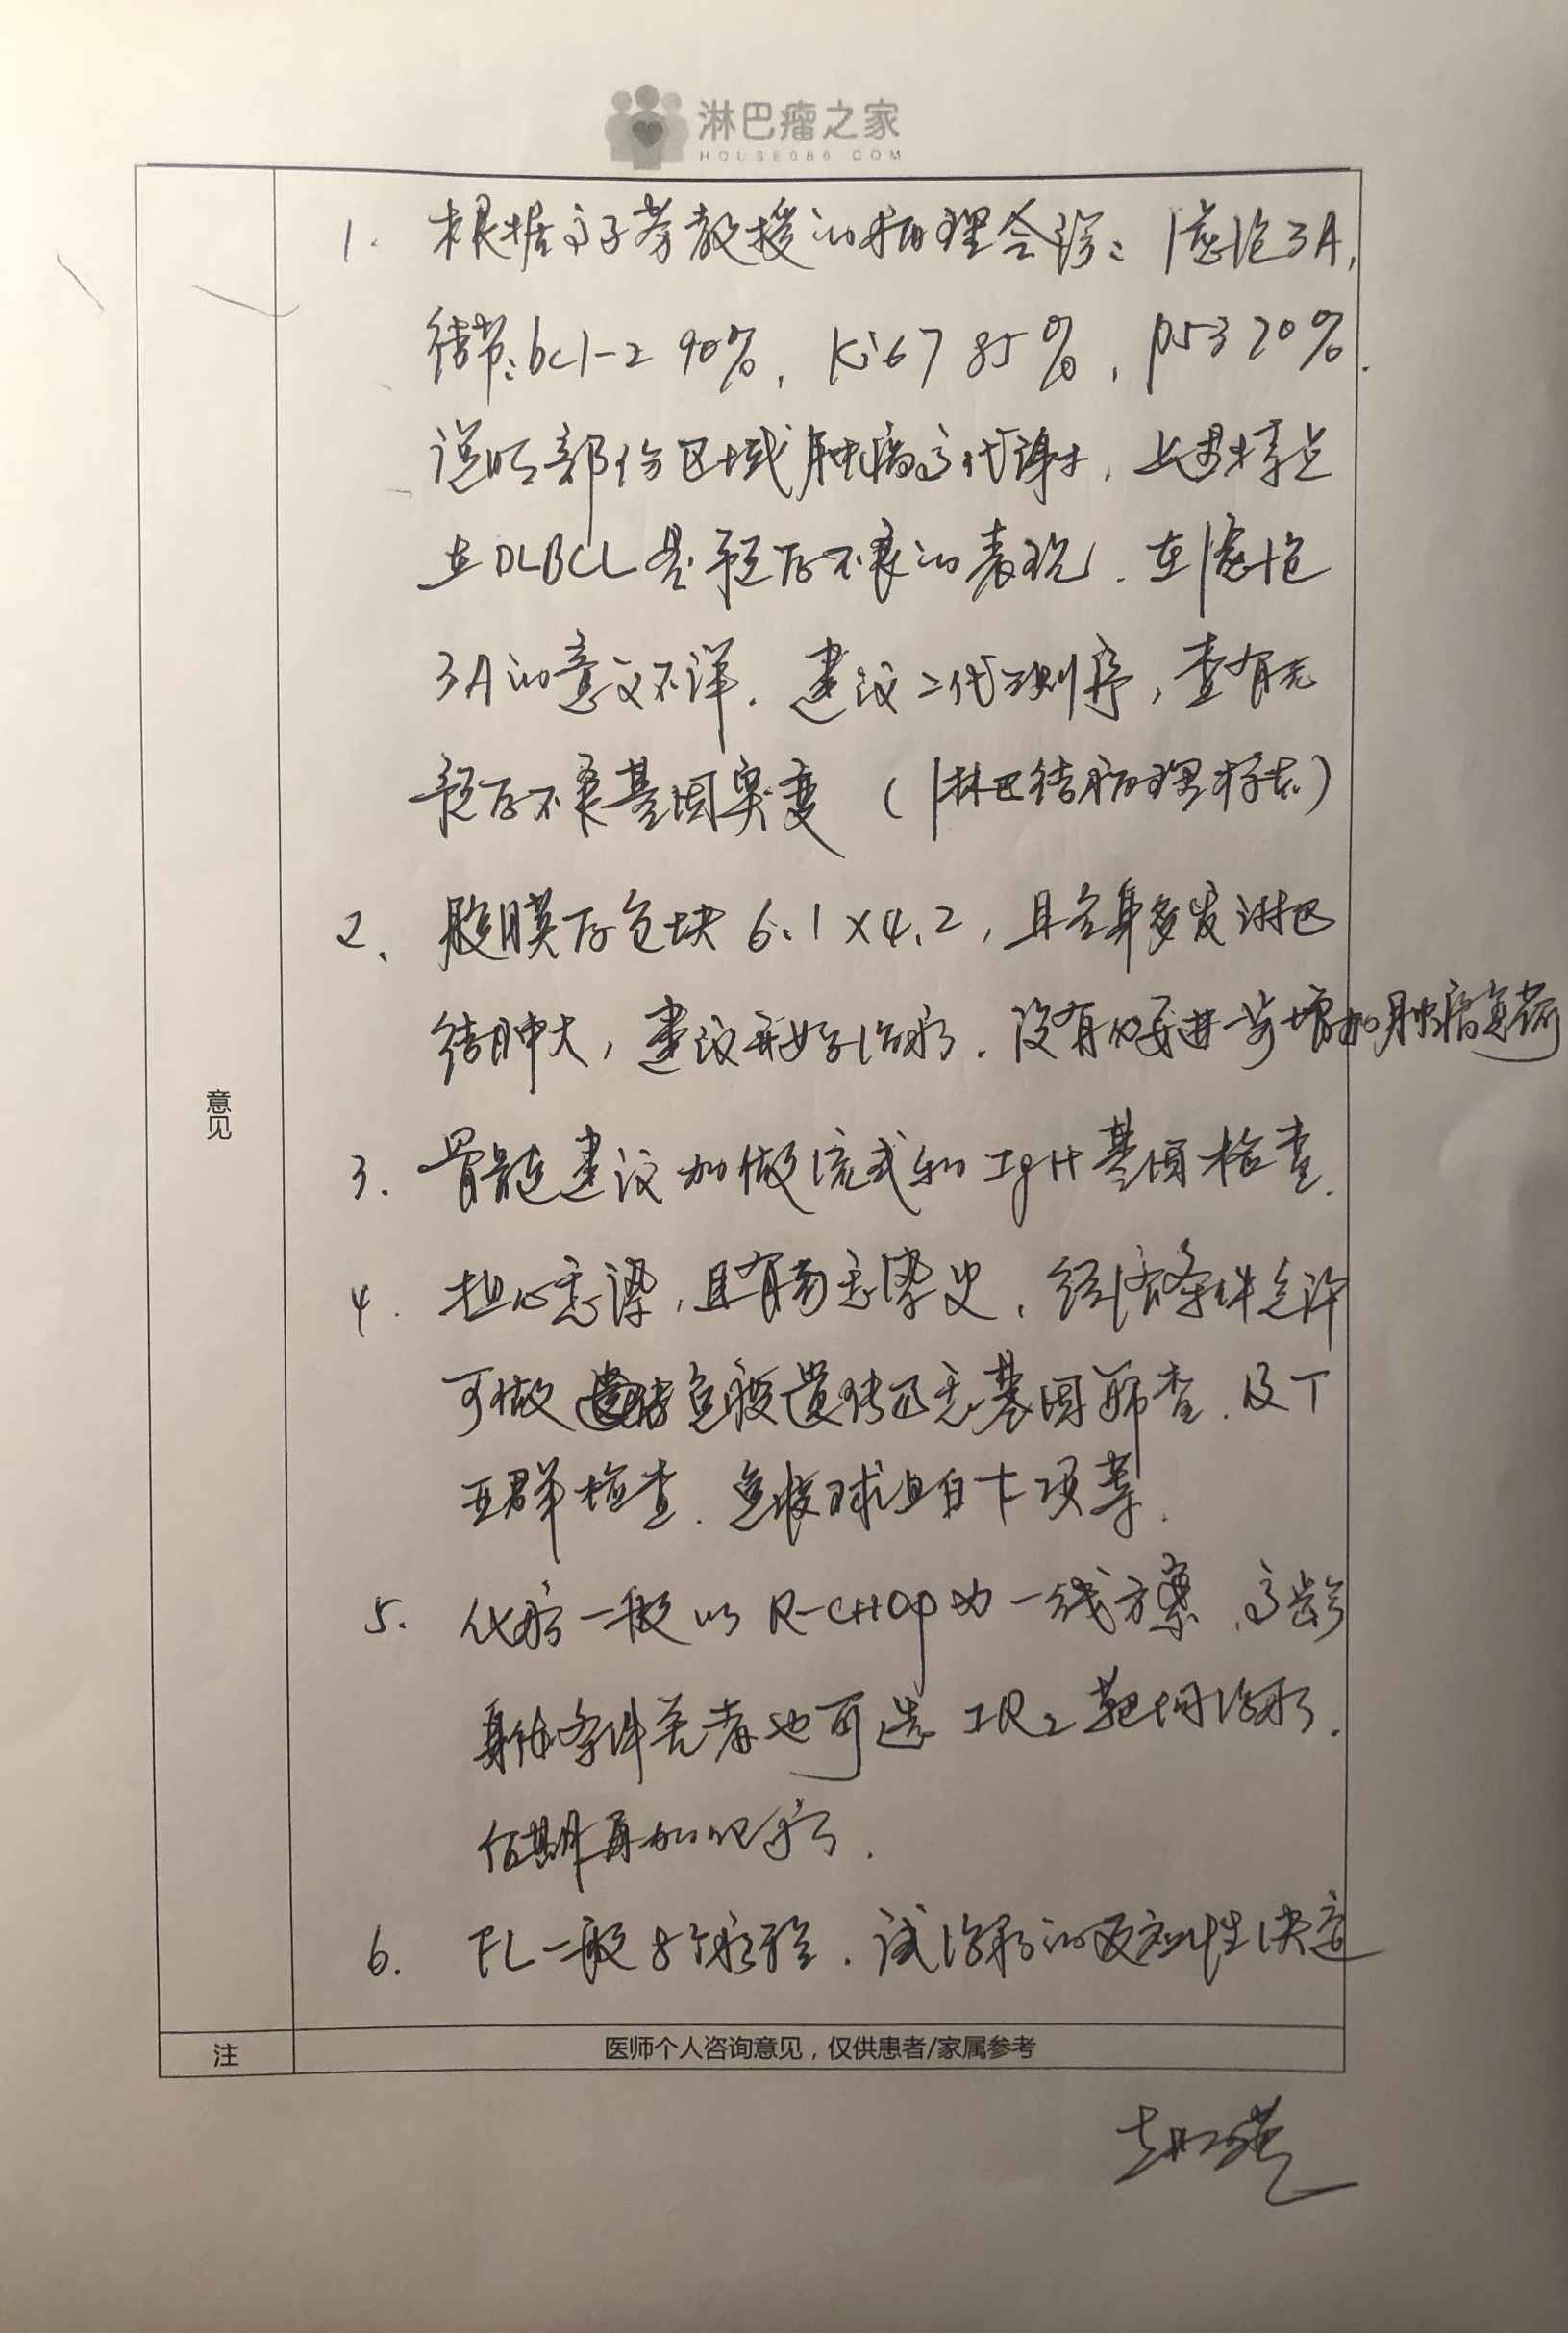 淋巴瘤之家
HOUSE086 COM
1. 根据高子芬教授的病理会诊：滤泡3A,
结节:bcl-2 90%, Ki67 85%, p53 20%.
说明部份区域肿瘤高代谢, 上述特点
在DLBCL是预后不良的表现. 在滤泡
3A的意义不详. 建议二代测序, 查有无
预后不良基因突变 (淋巴结病理标本)
2、腹膜后包块 6.1×4.2, 且全身多发淋巴
结肿大, 建议开始治疗. 没有必要进一步增加肿瘤负荷
3. 骨髓建议加做流式和IgH基因检查.
4. 担心感染, 且有感染史, 经济条件允许
可做免疫遗传相关基因筛查. 及T
亚群检查. 免疫球蛋白十项等.
5. 化疗一般以R-CHOP为一线方案, 高龄
身体条件差者也可选 IR2 靶向治疗.
后期再加化疗.
6. FL一般8个疗程. 试治疗的反应性决定
意见
注
医师个人咨询意见，仅供患者/家属参考